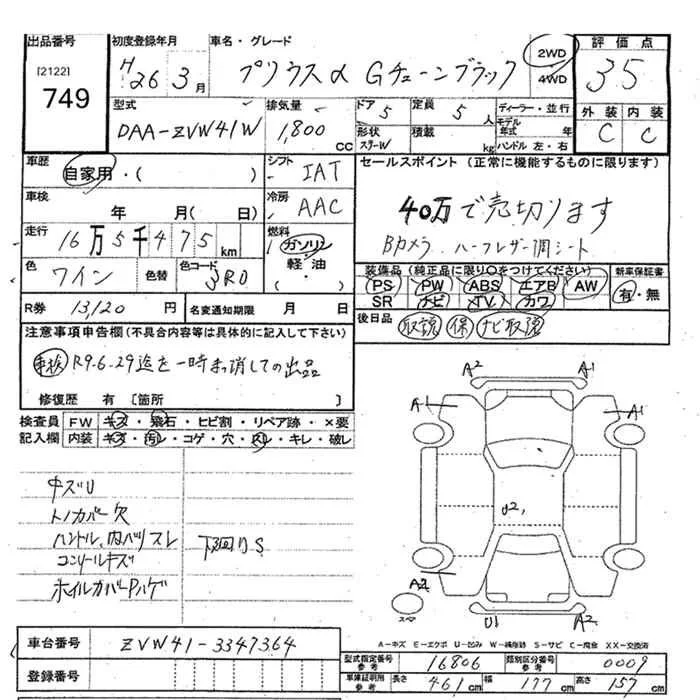 出品番号 初度登録年月 車名・グレード 評価点
[2122] 749 H26 3月 プリウスα Gチューンブラック 2WD 4WD 3.5
型式 排気量 ドア 5 定員 5人 ディーラー・並行 外装 内装
DAA-ZVW41W 1,800 CC 形状 積載 kg モデル年式 年 ハンドル 左・右 C C
車歴 自家用・( ) シフト IAT セールスポイント (正常に機能するものに限ります)
車検 年 月(日) 冷房 AAC 40万で売切ります
走行 16万5千475km 燃料 ガソリン 軽・油 Bカメラ ハーフレザー調シート
色 ワイン 色替 色コード 3R0 装備品(純正品に限り○をつけてください) 新車保証書
PS PW ABS エアB AW 有・無
SR ナビ TV カワ
R券 13,120円 名変通知期限 月 日 後日品 取説 保 ナビ取説
注意事項申告欄(不具合内容等は具体的に記入して下さい)
車検 R9.6.29迄を一時まっ消しての出品
修復歴 有[箇所 ]
検査員記入欄 FW キズ・飛石・ヒビ割・リペア跡・×要
内装 キズ・汚レ・コゲ・穴・スレ・キレ・破レ
キズU
トノカバー欠
ハンドル、内ハリスレ 下廻りS
コンソールキズ
ホイルカバーPハゲ
A2 A1
A1 A1
U2
A2 U1 A2
A-キズ E-エクボ U-凹み W-補修跡 S-サビ C-腐食 XX-交換済
車台番号 ZVW41-3347364
型式指定番号 参考 16806 類別区分番号 参考 0009
登録番号 車庫証明用 参考 長さ 461cm 幅 177cm 高さ 157cm